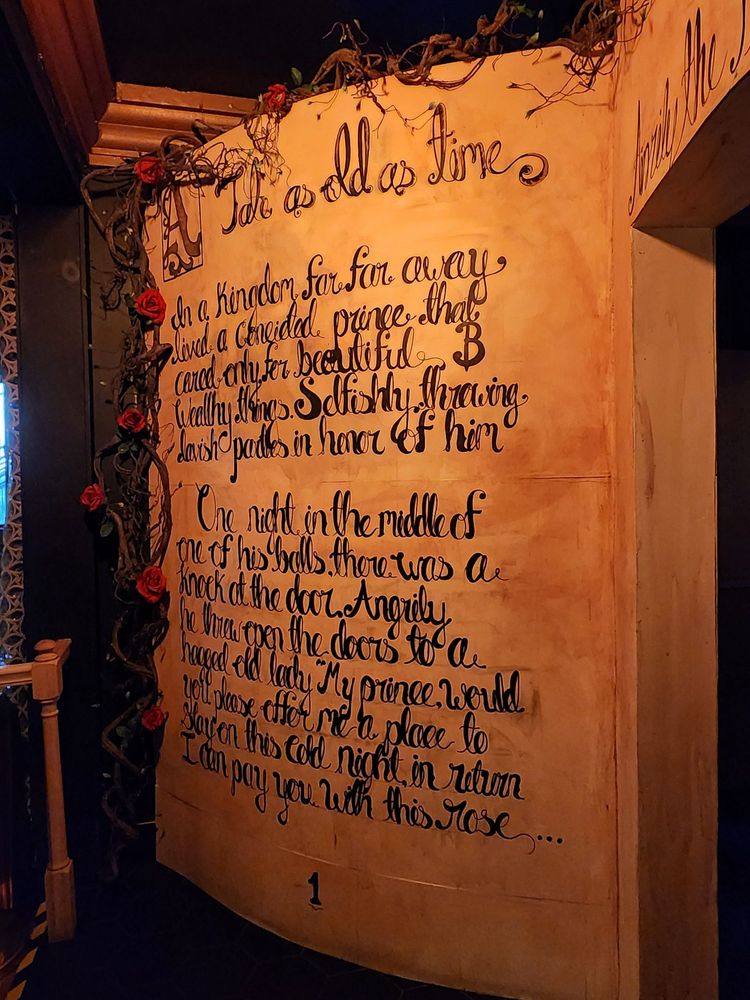 A Tale as old as time
In a Kingdom far far away
lived a concieted prince that
cared only for beautiful B
wealthy things. Selfishly throwing
lavish parties in honor of him
One night in the middle of
one of his balls, there was a
knock at the door. Angrily
he threw open the doors to a
hagged old lady "My prince, would
you please offer me a place to
stay on this cold night, in return
I can pay you with this rose...
1
the